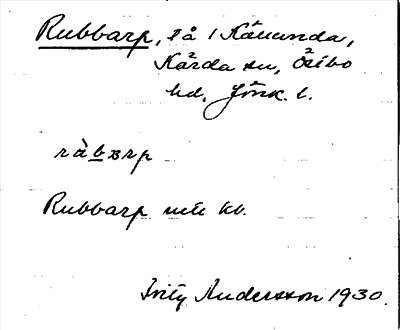 Rubbarp, så i Kävunda,
Kärda sn, Östbo
hd, Jönk. l.
ràbarp
Rubbarp
Andersson 1930.